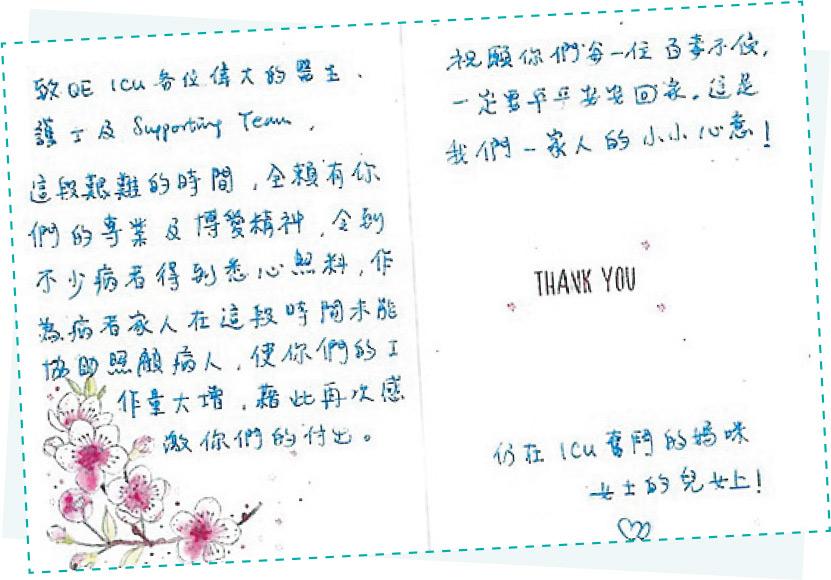 致QE ICU各位偉大的醫生、
護士及Supporting Team,
這段艱難的時間,全賴有你
們的專業及博愛精神,令到
不少病者得到悉心照料,作
為病者家人在這段時間未能
協助照顧病人,使你們的工
作量大增,藉此再次感
激你們的付出。
祝願你們每一位百毒不侵,
一定要平平安安回家。這是
我們一家人的小小心意!
THANK YOU
仍在ICU奮鬥的媽咪
女士的兒女上!